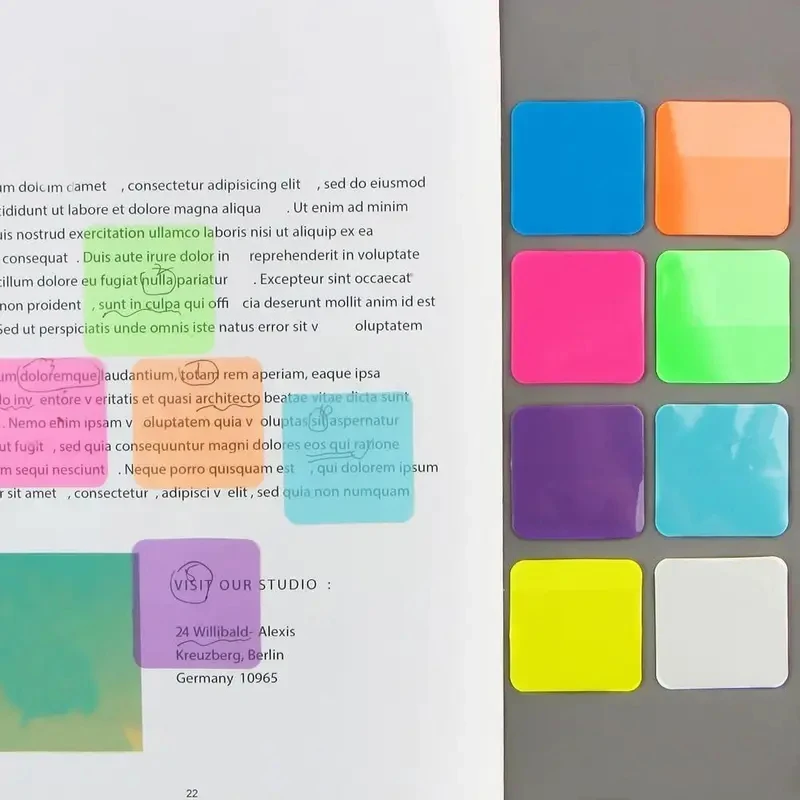 um dolcım damet , consectetur adipisicing elit , sed do eiusmod
cididunt ut labore et dolore magna aliqua . Ut enim ad minim
uis nostrud exercitation ullamco laboris nisi ut aliquip ex ea
consequat . Duis aute irure dolor in reprehenderit in voluptate
cillum dolore eu fugiat nulla pariatur . Excepteur sint occaecat
non proident , sunt in culpa qui offi cia deserunt mollit anim id est
Sed ut perspiciatis unde omnis iste natus error sit v oluptatem
um doloremque laudantium, totam rem aperiam, eaque ipsa
lo inv entore v eritatis et quasi architecto beatae vitae dicta sunt
. Nemo enim ipsam v oluptatem quia v oluptas sit aspernatur
ut fugit , sed quia consequuntur magni dolores eos qui ratione
m sequi nesciunt . Neque porro quisquam est , qui dolorem ipsum
r sit amet , consectetur , adipisci v elit , sed quia non numquam
VISIT OUR STUDIO :
24 Willibald- Alexis
Kreuzberg, Berlin
Germany 10965
22